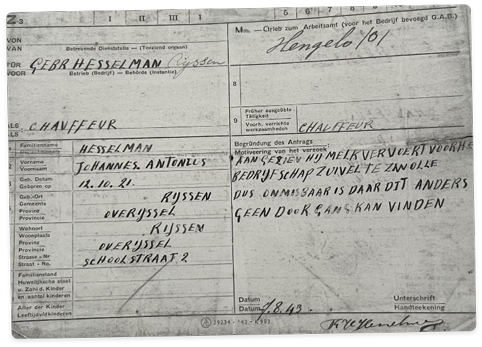 Z-3 I II III I 5 6 7 8
VON
VAN
Betreuende Dienststelle - (Toeziend orgaan)
GEBR HESSELMAN Ryssen
VOOR Betrieb (Bedrijf) - Behörde (Instantie)
ALS CHAUFFEUR
Familienname HESSELMAN
Vorname
Voornaam JOHANNES ANTONIUS
Geb. Datum
Geboren op 12.10.21.
Geb.-Ort
Gemeente RIJSSEN
Provinz
Provincie OVERIJSSEL
Wohnort
Woonplaats RIJSSEN
Provinz
Provincie OVERIJSSEL
Strasse - Nr
Straat - No. SCHOOLSTRAAT 2
Familienstand
Huwelijksche staat
u. Zahl d. Kinder
en aantal kinderen
Alter der Kinder
Leeftijd kinderen
An: - Ctrieb zum Arbeitsamt (voor het Bedrijf bevoegd G.A.B.)
Hengelo /O/
8
9 Früher ausgeübte
Tätigkeit
Voorh. verrichte
werkzaamheden CHAUFFEUR
Begründung des Antrags
Motiveering van het verzoek
AANGEZIEN HIJ MELK VERVOERT VOOR HE
BEDRIJFSCHAP ZUIVEL TE ZWOLLE
DUS ONMISBAAR IS DAAR DIT ANDERS
GEEN DOORGANG KAN VINDEN
Datum
Datum 7.8.43.
Unterschrift
Handteekening